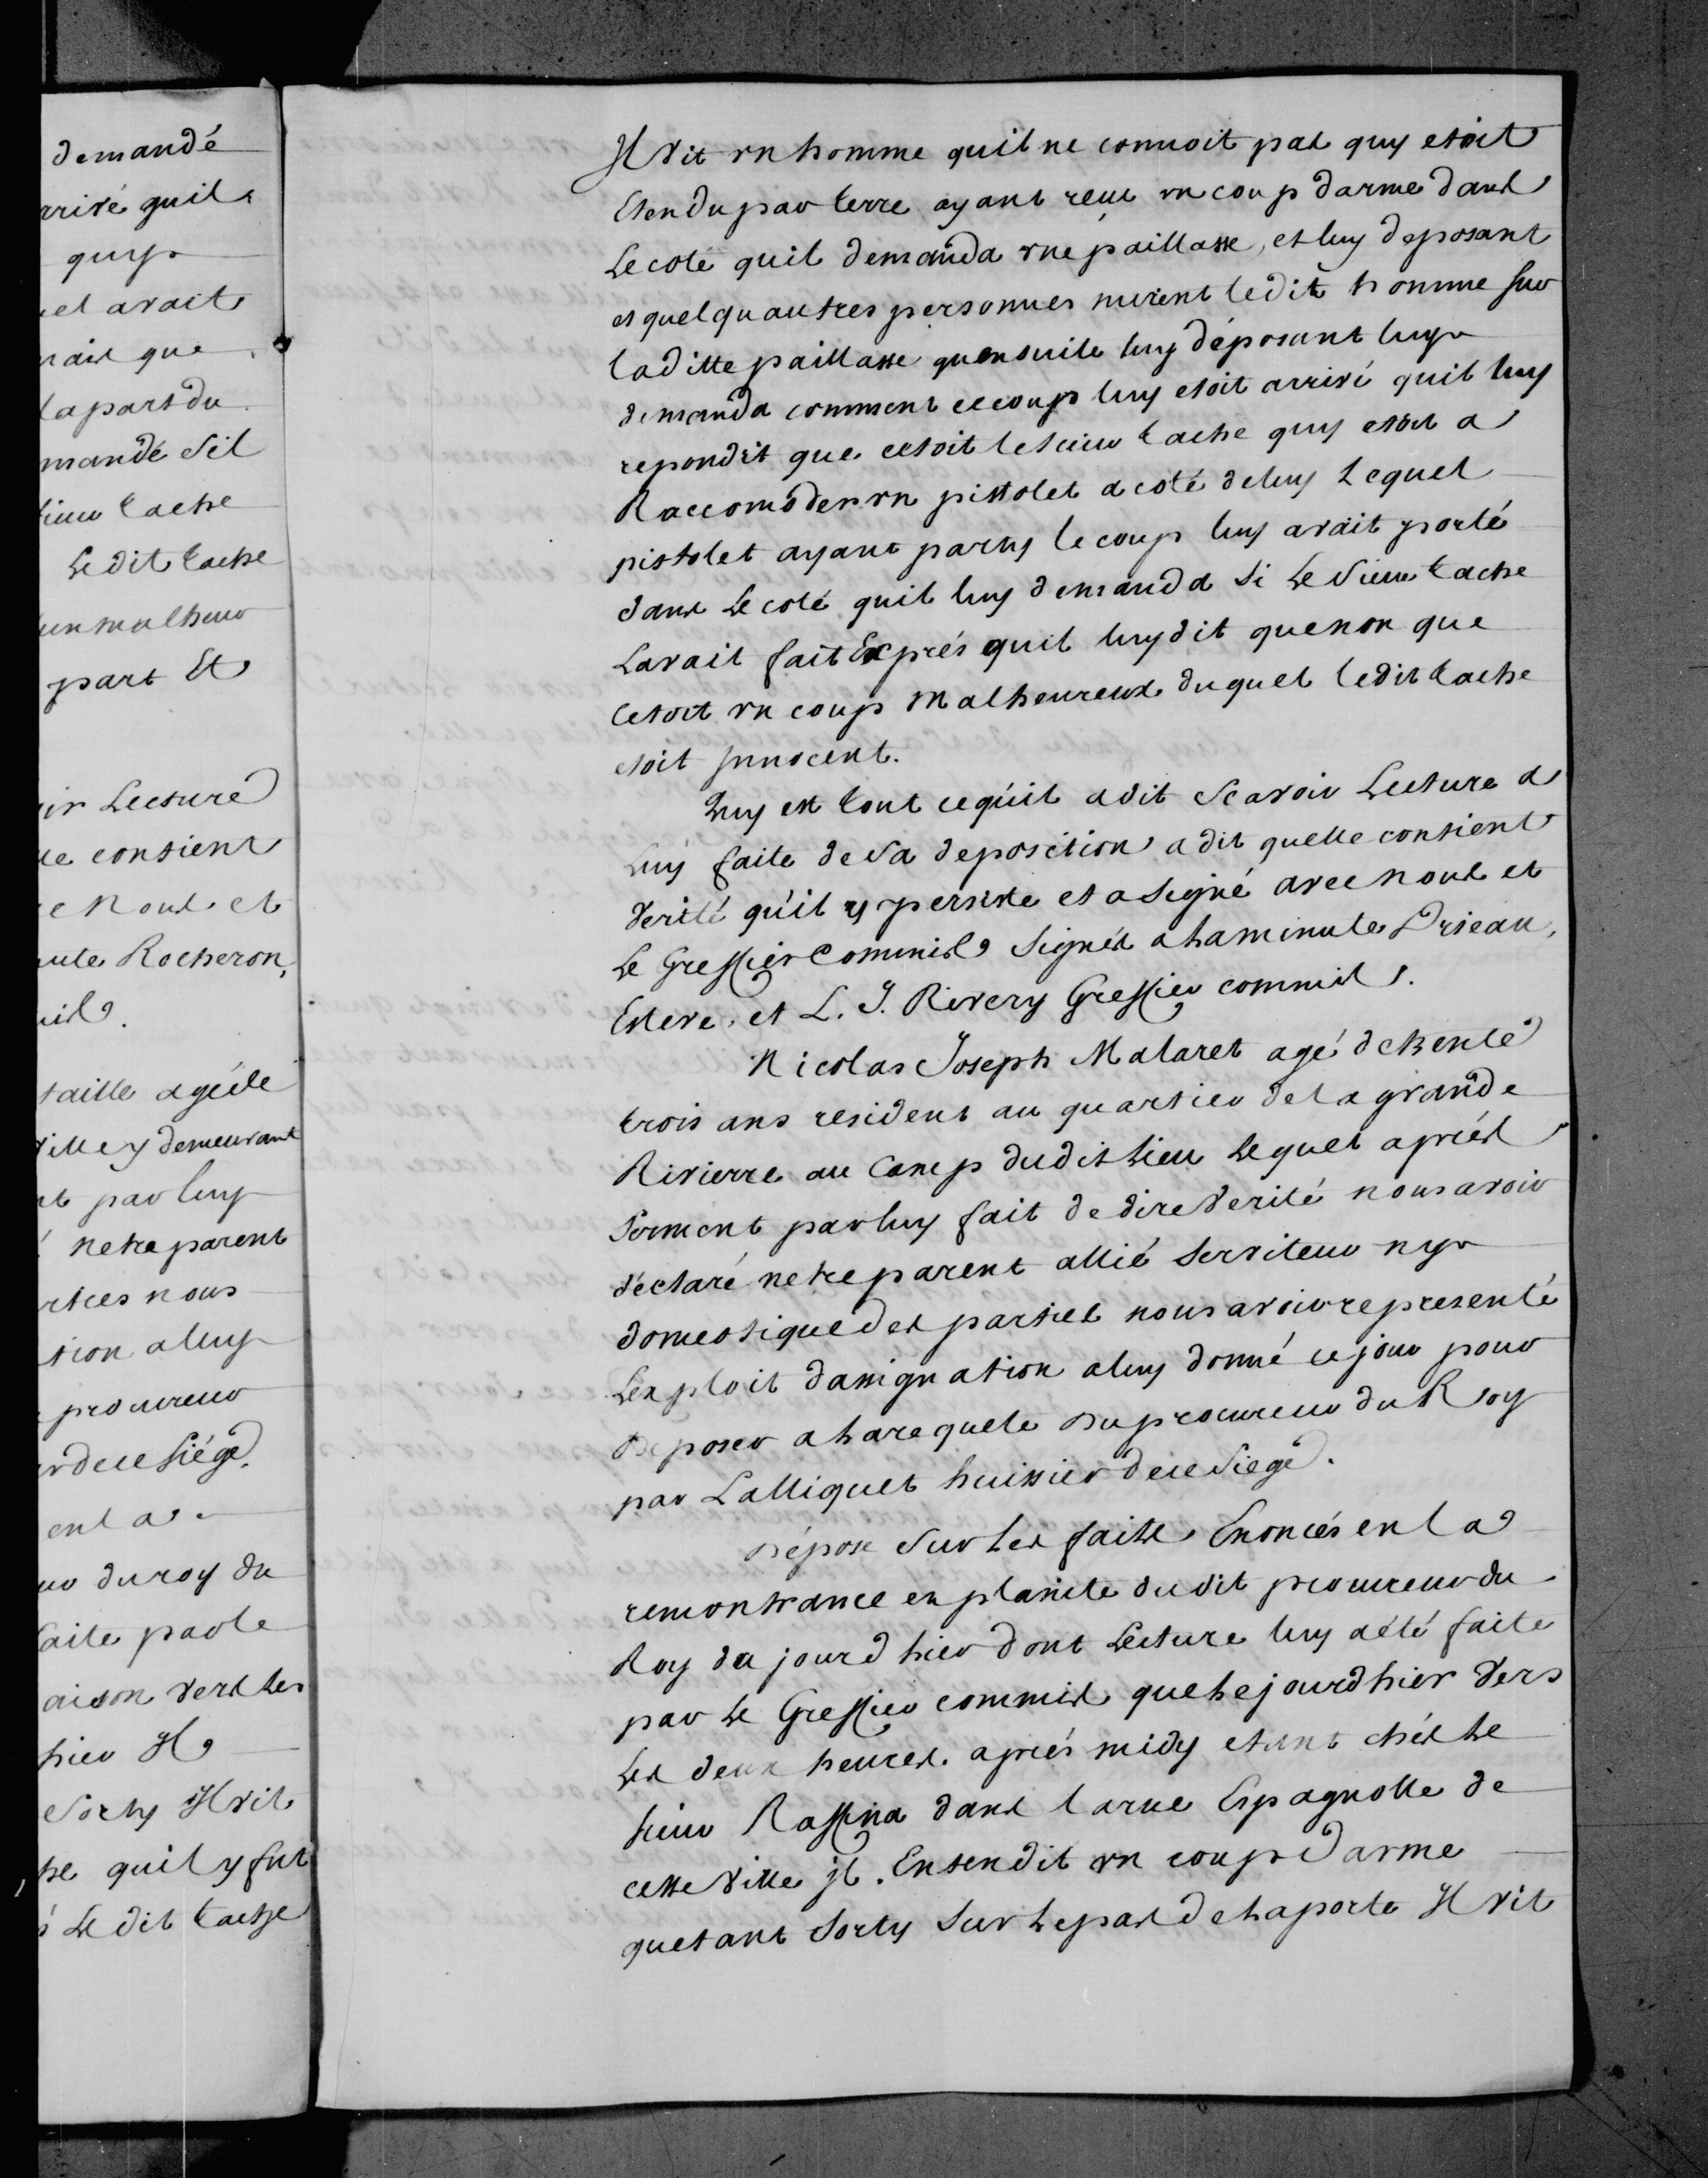 demandé
rrivé quil
quy
uel avait
nais que
la part du
mandé sil
sieur tache
Le dit tache
un malheur
part Et
ir Lecture
lle contient
c Nous et
nute Rocheron,
mis.
taille agé de
ville y demeurant
nt par luy
netre parent
rties nous
tion a luy
procureur
r de ce siége.
en la
ur du roy du
faite par le
aison vers les
hier Il
Sorty Il vit
he quil y fut
Le dit tache
Il vit un homme quil ne connoit pas quy etoit
Etendu par terre ayant reçu un coup darme dans
Le coté quil demanda une paillasse, et luy deposant
et quelqu autres personnes mirent le dit homme sur
la ditte paillasse quensuite luy déposant luy
demanda comment ce coup luy etoit arrivé quil luy
repondit que cetoit le sieur tache quy etoit a
Raccomoder un pistolet a coté de luy Lequel
pistolet ayant party le coup luy avait porté
dans Le coté quil luy demanda si Le sieur tache
Lavait fait Exprés quil luy dit que non que
Cetoit un coup Malheureux duquel le dit tache
etoit Innocent.
Quy est tout ce qu'il a dit Scavoir Lecture a
Luy faite de sa deposition a dit quelle contient
Verité qu'il y persiste et a signé avec nous et
Le Greffier Commis Signés a la minute Drieau,
Esteve, et L. J. Rivery Greffier commis.
Nicolas Joseph Malaret agé de trente
trois ans resident au quartier de la grande
Rivierre au Camp dudit Lieu Lequel aprés
Serment par luy fait de dire Verité nous avoir
déclaré netre parent allié Serviteur ny
domestique des parties nous avoir representé
Lexploit dassignation a luy donné ce jour pour
Deposer a la requete du procureur du Roy
par Lalliquet huissier de ce Siege.
Dépose sur les faits Enoncés en la
remontrance en plainte dudit procureur du
Roy du jourd hier dont Lecture luy a été faite
par Le Greffier commis que le jourd hier Vers
Les deux heures aprés midy etant chés Le
sieur Raffina dans la rue Espagnolle de
cette Ville il Entendit un coup darme
quetant Sorty Sur Le pas de la porte Il vit